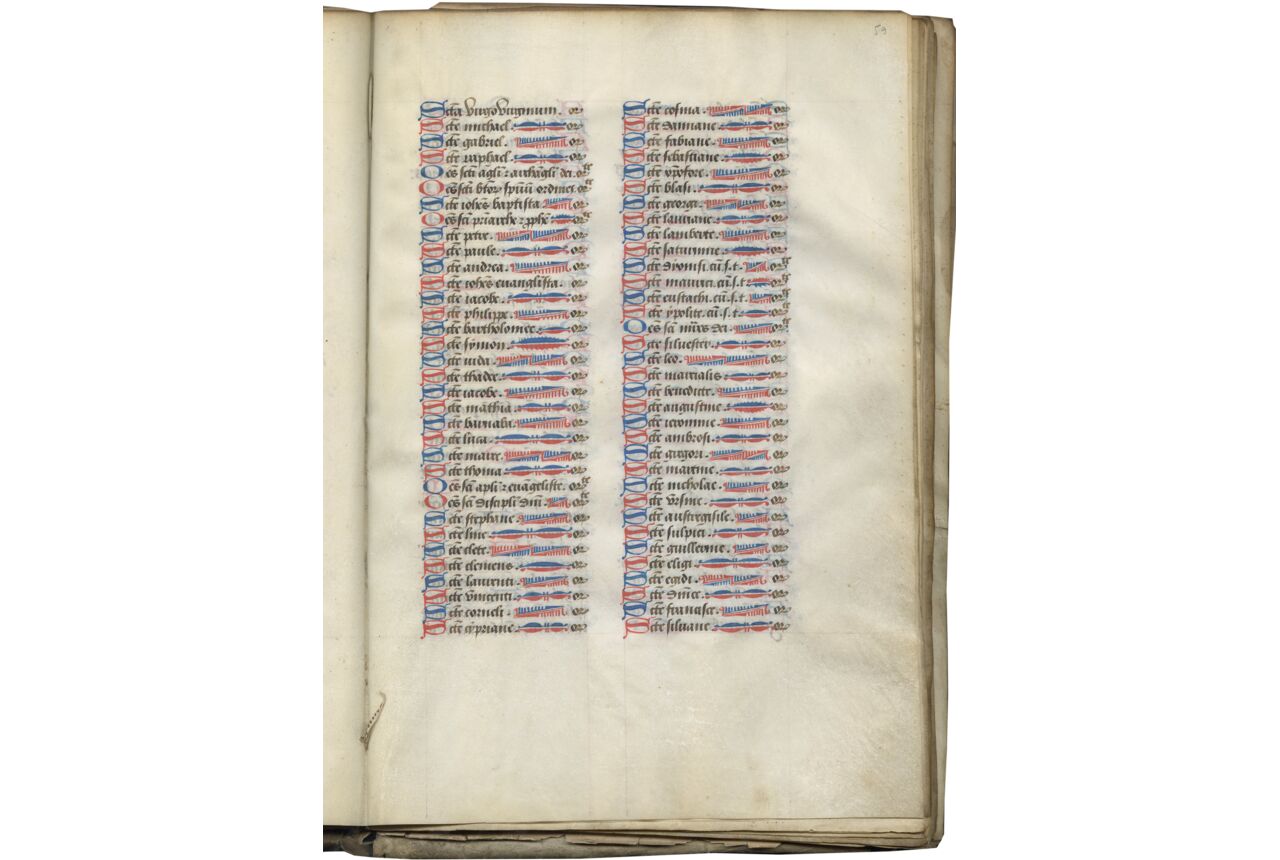 59
Scta Virgo Virginum. or
Scte michael. or
Scte gabriel. or
Scte raphael. or
Oes scti agli & archagli dei. or
Oes scti btor spiuu ordines or
Scte iohes baptista or
Oes scti priarche & pphe or
Scte petre. or
Scte paule. or
Scte andrea. or
Scte iohes euanglista. or
Scte iacobe. or
Scte philippe. or
Scte bartholomee. or
Scte symon. or
Scte iuda. or
Scte thadee. or
Scte iacobe. or
Scte mathia. or
Scte barnaba. or
Scte luca. or
Scte marce. or
Scte thoma. or
Oes scti apli & euageliste. or
Oes scti discipli dni. or
Scte stephane. or
Scte line. or
Scte clete. or
Scte clemens. or
Scte laurenti. or
Scte vincenti. or
Scte corneli. or
Scte cypriane. or
Scte cosma. or
Scte damiane. or
Scte fabiane. or
Scte sebastiane. or
Scte xpofore. or
Scte blasi. or
Scte georgi. or
Scte lauriane. or
Scte lamberte. or
Scte saturnine. or
Scte dyonisi. cu. s. t. or
Scte maurici. cu. s. t. or
Scte eustachi. cu. s. t. or
Scte ypolite. cu. s. t. or
Oes sci mres dei. or
Scte siluester. or
Scte leo. or
Scte marcialis. or
Scte benedicte. or
Scte augustine. or
Scte ieronime. or
Scte ambrosi. or
Scte gregori. or
Scte martine. or
Scte nicholae. or
Scte Vrsine. or
Scte austregisile. or
Scte sulpici. or
Scte guillerme. or
Scte eligi. or
Scte egidi. or
Scte dnice. or
Scte francisce. or
Scte siluane. or